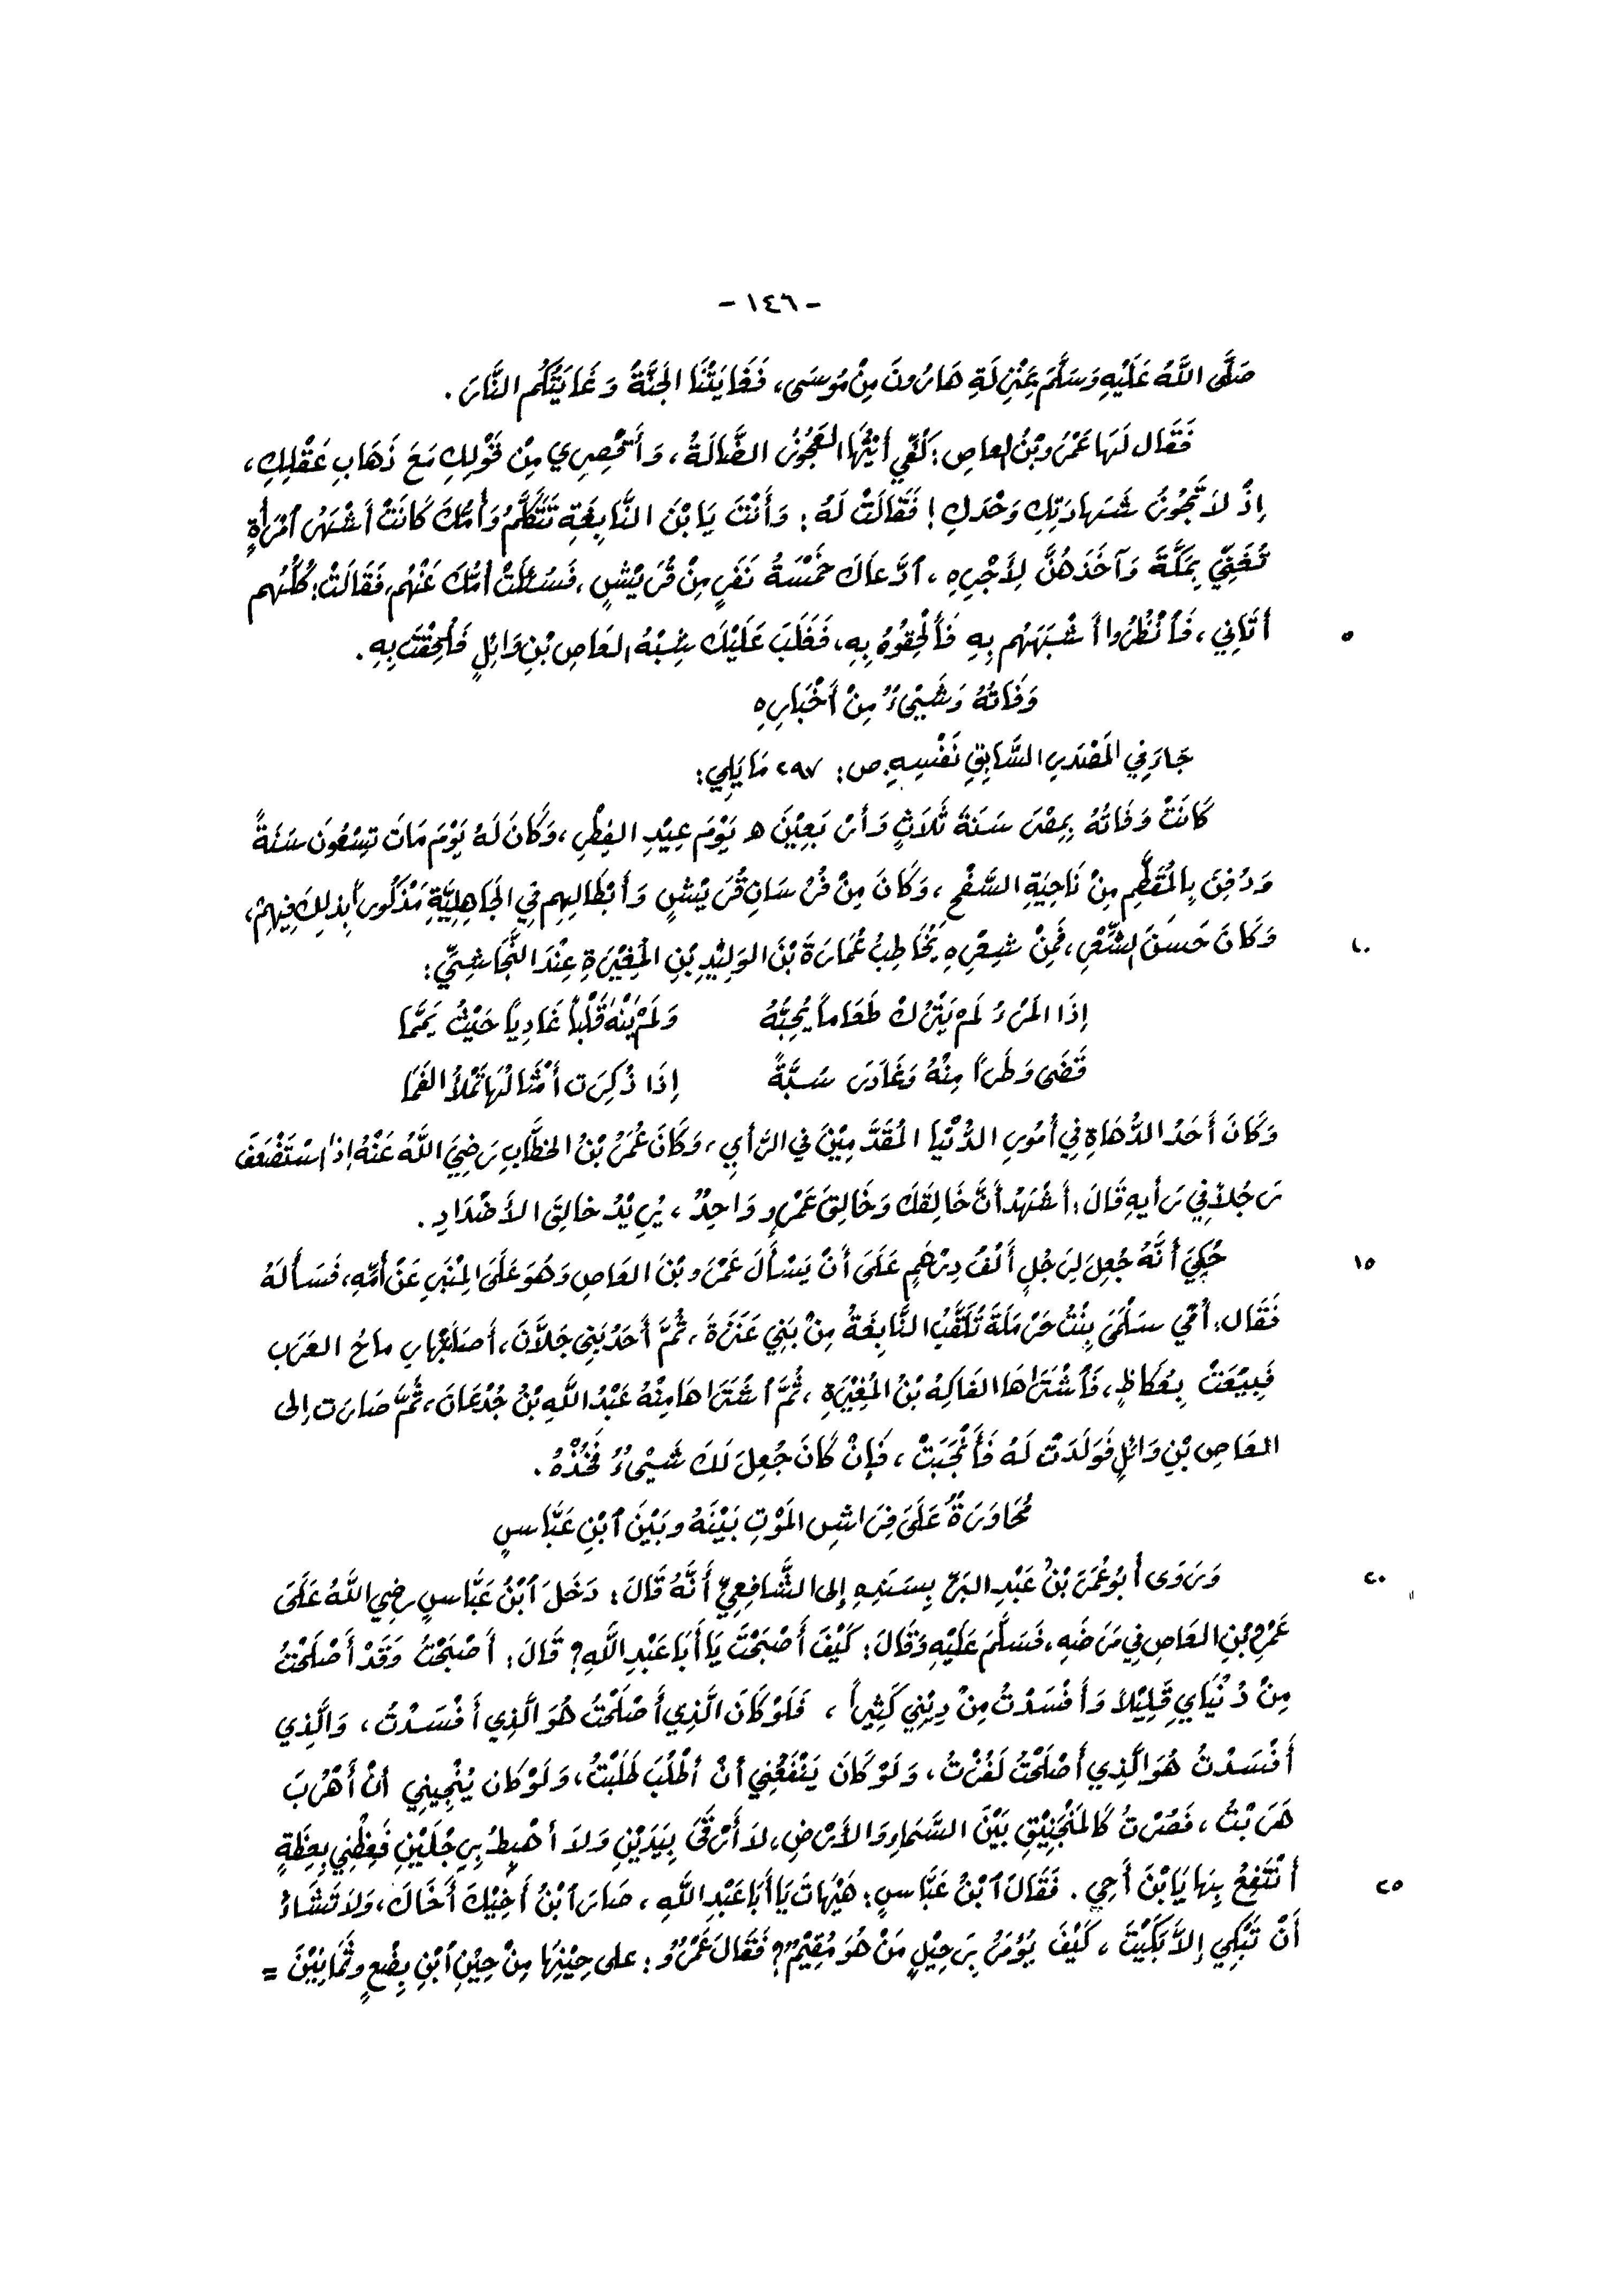 - ١٤٦ -
صَلَّى اللَّهُ عَلَيْهِ وَسَلَّمَ بِمَنْزِلَةِ هَارُونَ مِنْ مُوسَى، فَغَايَتُنَا الجَنَّةُ وَغَايَتُكُم النَّارُ .
فَقَال لَهَا عَمْرُو بْنُ العاص : كُفِّي أَيَّتُهَا العَجُوْزُ الضَّالَةُ ، وَأَقْصِرِي مِنْ قَوْلِكِ مَعَ ذَهَابِ عَقْلِكِ ،
إِذْ لاَ تَجُوْزُ شَهَادَتِكِ وَحْدَكِ ! فَقَالَتْ لَهُ : وَأَنْتَ يَا بْنَ النَّابِغَةِ تَتَكَلَّمُ وَأُمُّكَ كَانَتْ أَشْهَرَ ٱمْرَأَةٍ
تُغَنِّي بِمَكَّةَ وَآخَذَهُنَّ لِأُجْرِهِ ، ٱدَّعَاكَ خَمْسَةُ نَفَرٍ مِنْ قُرَيْشٍ ، فَسُئِلَتْ أُمُّكَ عَنْهُم، فَقَالَتْ : كُلُّهُم
أَتَانِي ، فَٱنْظُرُوا أَشْبَهَهُم بِهِ فَأَلْحِقُوْهُ بِهِ، فَغَلَبَ عَلَيْكَ شِبْهُ العَاصِ بْنِ وَائِلٍ فَلُحِقْتَ بِهِ .
٥
وَفَاتُهُ وَشَيْىءٌ مِنْ أَخْبَارِهِ
جَاءَ فِي المَصْدَرِ السَّابِقِ نَفْسِهِ ص : ٢٩٧ مَا يَلِي :
كَانَتْ وَفَاتُهُ بِمِصْرَ سَنَةَ ثَلاَثٍ وَأَرْبَعِيْنَ ه يَوْمَ عِيْدِ الفِطْرِ ، وَكَانَ لَهُ يَوْمَ مَاتَ تِسْعُونَ سَنَةً
وَدُفِنَ بِالمُقَطَّمِ مِنْ نَاحِيَةِ السَّفْحِ ، وَكَانَ مِنْ فُرْسَانِ قُرَيْشٍ وَأَبْطَالِهِم فِي الجَاهِلِيَّةِ مَذْكُوراً بِذَلِكَ فِيهِمْ ،
وَكَانَ حَسَنَ الشِّعْرِ ، فَمِنْ شِعْرِهِ يُخَاطِبُ عُمَارَةَ بْنَ الوَلِيْدِ بْنِ المُغِيْرَةِ عِنْدَ النَّجَاشِيِّ :
١٠
إِذَا المَرْءُ لَمْ يَتْرُكْ طَعَاماً يُحِبُّهُ    وَلَمْ يَنْهَ قَلْباً غَادِياً حَيْثُ يَمَّمَا
قَضَى وَطَراً مِنْهُ وَغَادَرَ سَبَّةً    إِذَا ذُكِرَت أَمْثَالُهَا تَمْلأُ الفَمَا
وَكَانَ أَحَدُ الدُّهَاةِ فِي أُمُورِ الدُّنْيَا المُقَدَّمِيْنَ فِي الرَّأيِ ، وَكَانَ عُمَرُ بْنُ الخَطَّابِ رَضِيَ اللَّهُ عَنْهُ إِذَا اسْتَضْعَفَ
رَجُلاً فِي رَأيِهِ قَالَ : أَشْهَدُ أَنَّ خَالِقَكَ وَخَالِقَ عَمْرٍو وَاحِدٌ ، يُرِيْدُ خالِقَ الأَضْدَادِ .
حُكِيَ أَنَّهُ جُعِلَ لِرَجُلٍ أَلْفُ دِرْهَمٍ عَلَى أَنْ يَسْأَلَ عَمْرَو بْنَ العَاصِ وَهُوَ عَلَى المِنْبَرِ عَنْ أُمِّهِ، فَسَأَلَهُ
١٥
فَقَال : أُمِّي سَلْمَى بِنْتُ حَرْمَلَةَ تُلَقَّبُ النَّابِغَةُ مِنْ بَنِي عَنَزَةَ ، ثُمَّ أَحَدُ بَنِي جَلاَّنَ ، أَصَابَتْهَا رِمَاحُ العَرَبِ
فَبِيْعَتْ بِعُكَاظٍ ، فَٱشْتَرَاهَا الفَاكِهُ بْنُ المُغِيْرَةِ ، ثُمَّ ٱشْتَرَاهَا مِنْهُ عَبْدُ اللَّهِ بْنُ جُدْعَانَ ، ثُمَّ صَارَت إِلى
العَاصِ بْنِ وَائِلٍ فَوَلَدَتْ لَهُ فَأَنْجَبَتْ ، فَإِنْ كَانَ جُعِلَ لَكَ شَيْىءٌ فَخُذْهُ .
مُحَاوَرَةٌ عَلَى فِرَاشِ المَوْتِ بَيْنَهُ وبَيْنَ ٱبْنِ عَبَّاسٍ
وَرَوَى أَبُو عُمَرَ بْنُ عَبْدِ البَرِّ بِسَنَدِهِ إِلى الشَّافِعِيِّ أَنَّهُ قَالَ : دَخَلَ ٱبْنُ عَبَّاسٍ رضِيَ اللَّهُ عَلَى
٢٠
عَمْرِو بْنِ العَاصِ فِي مَرَضِهِ ، فَسَلَّمَ عَلَيْهِ وَقَالَ : كَيْفَ أَصْبَحْتَ يَا أَبَا عَبْدِ اللَّهِ ؟ قَالَ : أَصْبَحْتُ وَقَدْ أَصْلَحْتُ
مِنْ دُنْيَاي قَلِيْلاً وَأَفْسَدْتُ مِنْ دِيْنِي كَثِيْراً ، فَلَوْ كَانَ الَّذِي أَصْلَحْتُ هُوَ الَّذِي أَفْسَدْتُ ، وَالَّذِي
أَفْسَدْتُ هُوَ الَّذِي أَصْلَحْتُ لَفُزْتُ ، وَلَوْ كَانَ يَنْفَعُنِي أَنْ أَطْلُبَ لَطَلَبْتُ ، وَلَوْ كَان يُنْجِينِي أَنْ أَهْرُبَ
هَرَبْتُ ، فَصُرْتُ كَالمَنْجَنِيْقِ بَيْنَ السَّمَاءِ وَالأَرْضِ ، لاَ أَرْقَى بِيَدَيْنِ وَلاَ أَهْبِطُ بِرِجْلَيْنِ فَعِظْنِي بِعِظَةٍ
أَنْتَفِعُ بِهَا يَا بْنَ أَخِي . فَقَالَ ٱبْنُ عَبَّاسٍ : هَيْهَاتَ يَا أَبَا عَبْدِ اللَّهِ ، صَارَ ٱبْنُ أَخِيْكَ أَخَاكَ ، وَلاَ تَشَاءُ
٢٥
أَنْ تَبْكِي إِلاَّ بَكَيْتَ ، كَيْفَ يُؤْمَرُ بِرَحِيْلٍ مَنْ هُوَ مُقِيْمٌ ؟ فَقَالَ عَمْرٌو : على حِيْنِهَا مِنْ حِيْنِ ٱبْنِ بِضْعٍ وثَمَانِيْنَ =